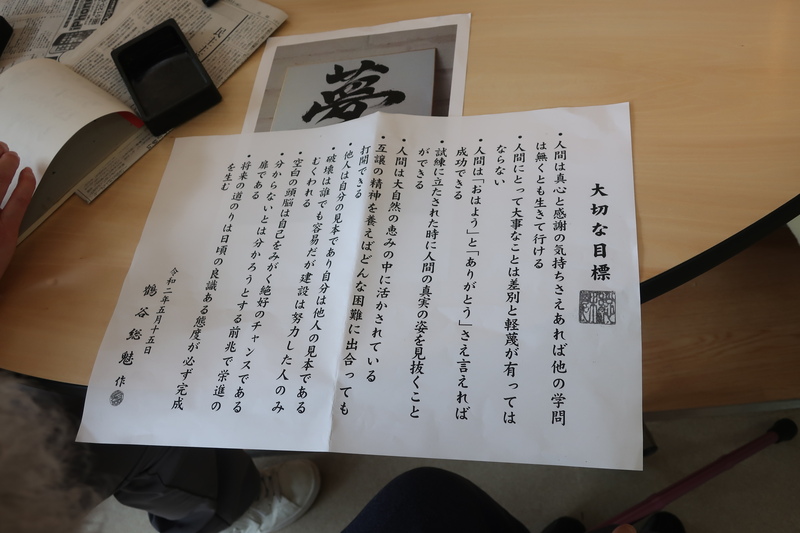 夢
大切な目標
・人間は真心と感謝の気持ちさえあれば他の学問
は無くとも生きて行ける
・人間にとって大事なことは差別と軽蔑が有っては
ならない
・人間は「おはよう」と「ありがとう」さえ言えれば
成功できる
・試練に立たされた時に人間の真実の姿を見抜くこと
ができる
・人間は大自然の恵みの中に活かされている
・互譲の精神を養えばどんな困難に出合っても
打開できる
・他人は自分の見本であり自分は他人の見本である
・破壊は誰でも容易だが建設は努力した人のみ
むくわれる
・空白の頭脳は自己をみがく絶好のチャンスである
・分からないとは分かろうとする前兆で栄進の
扉である
・将来の道のりは日頃の良識ある態度が必ず完成
を生む
令和二年五月十五日
鶴谷総魅 作